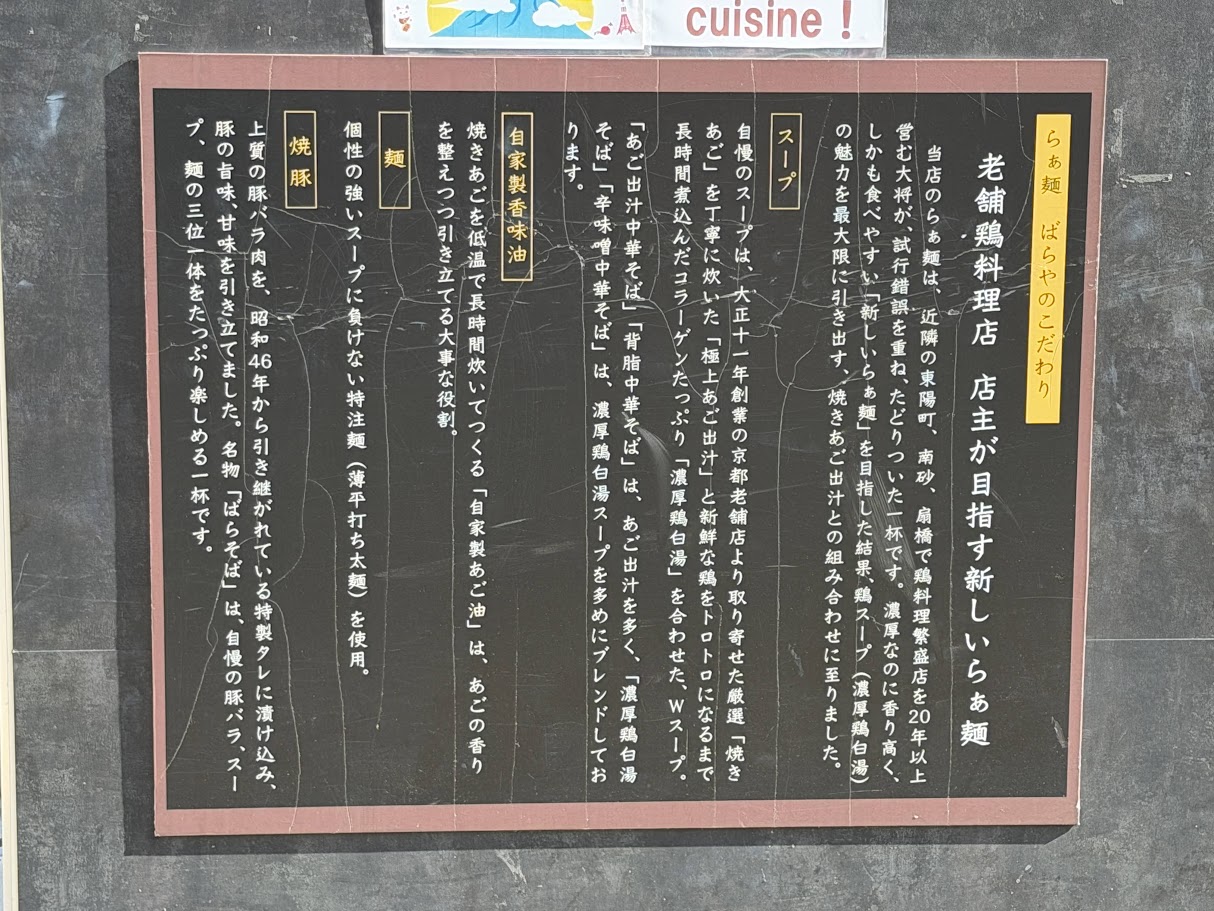 cuisine！
らぁ麺　ばらやのこだわり
老舗鶏料理店　店主が目指す新しいらぁ麺
当店のらぁ麺は、近隣の東陽町、南砂、扇橋で鶏料理繁盛店を20年以上
営む大将が、試行錯誤を重ね、たどりついた一杯です。濃厚なのに香り高く、
しかも食べやすい「新しいらぁ麺」を目指した結果、鶏スープ（濃厚鶏白湯）
の魅力を最大限に引き出す、焼きあご出汁との組み合わせに至りました。
スープ
自慢のスープは、大正十一年創業の京都老舗店より取り寄せた厳選「焼き
あご」を丁寧に炊いた「極上あご出汁」と新鮮な鶏をトロトロになるまで
長時間煮込んだコラーゲンたっぷり「濃厚鶏白湯」を合わせた、Wスープ。
「あご出汁中華そば」「背脂中華そば」は、あご出汁を多く、「濃厚鶏白湯
そば」「辛味噌中華そば」は、濃厚鶏白湯スープを多めにブレンドしてお
ります。
自家製香味油
焼きあごを低温で長時間炊いてつくる「自家製あご油」は、あごの香り
を整えつつ引き立てる大事な役割。
麺
個性の強いスープに負けない特注麺（薄平打ち太麺）を使用。
焼豚
上質の豚バラ肉を、昭和46年から引き継がれている特製タレに漬け込み、
豚の旨味、甘味を引き立てました。名物「ばらそば」は、自慢の豚バラ、スー
プ、麺の三位一体をたっぷり楽しめる一杯です。